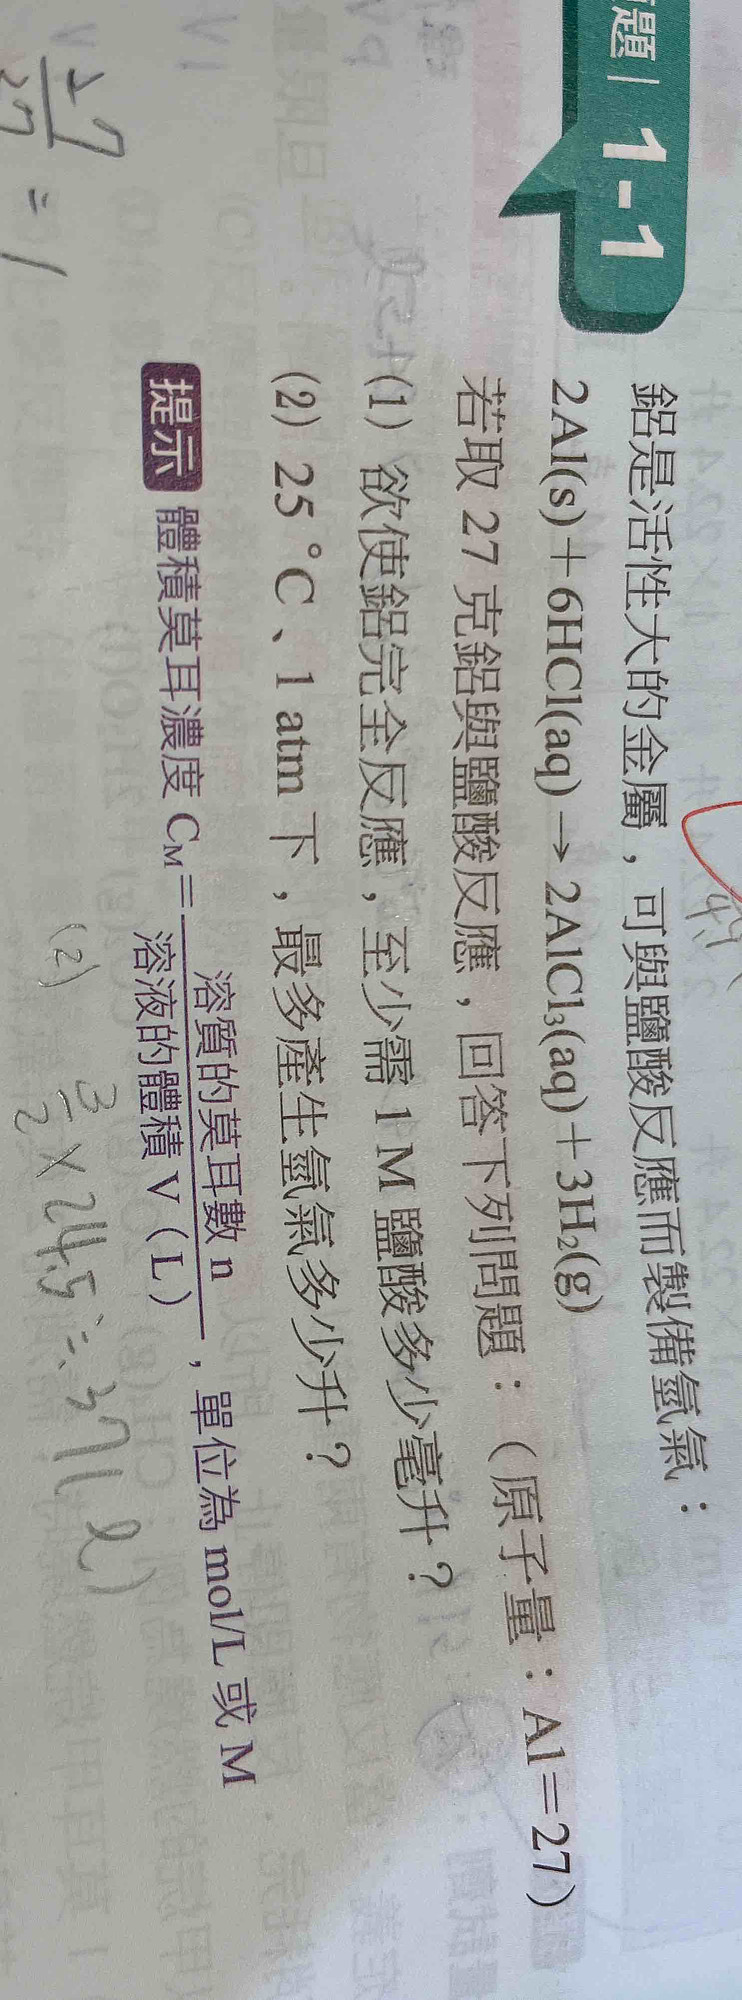 題 1-1
鋁是活性大的金屬，可與鹽酸反應而製備氫氣：
2Al(s)＋6HCl(aq)→2AlCl₃(aq)＋3H₂(g)
若取 27 克鋁與鹽酸反應，回答下列問題：（原子量：Al＝27）
(1) 欲使鋁完全反應，至少需 1 M 鹽酸多少毫升？
(2) 25 °C、1 atm 下，最多產生氫氣多少升？
提示 體積莫耳濃度 C_M＝溶質的莫耳數 n／溶液的體積 V（L），單位為 mol/L 或 M
27/27 = 1
(2) 3/2 × 24.5 ≒ 37(L)